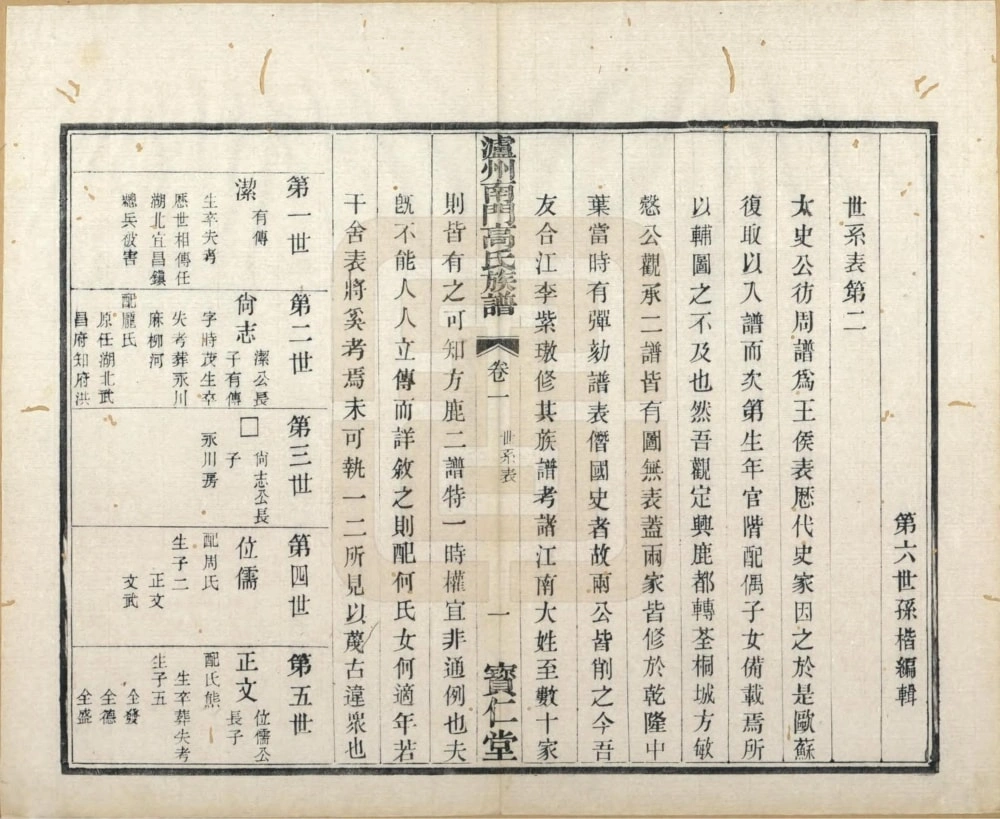 世系表第二
第六世孫楷編輯
太史公彷周譜爲王侯表歷代史家因之於是歐蘇
復取以入譜而次第生年官階配偶子女備載焉所
以輔圖之不及也然吾觀定興鹿都轉荃桐城方敏
慤公觀承二譜皆有圖無表蓋兩家皆修於乾隆中
葉當時有彈劾譜表僭國史者故兩公皆削之今吾
友合江李紫璈修其族譜考諸江南大姓至數十家
瀘州南門高氏族譜 卷一 世系表 一 寶仁堂
則皆有之可知方鹿二譜特一時權宜非通例也夫
旣不能人人立傳而詳敘之則配何氏女何適年若
干舍表將奚考焉未可執一二所見以蔑古違衆也
第一世
潔 有傳
生卒失考
歷世相傳任
湖北宜昌鎮
總兵被害
第二世
尙志 潔公長子有傳
字時茂生卒
失考葬永川
麻柳河
配龐氏
原任湖北武
昌府知府洪
第三世
□ 尙志公長子
永川房
第四世
位儒
配周氏
生子二
正文
文武
第五世
正文 位儒公長子
配氏熊
生卒葬失考
生子五
全發
全德
全盛